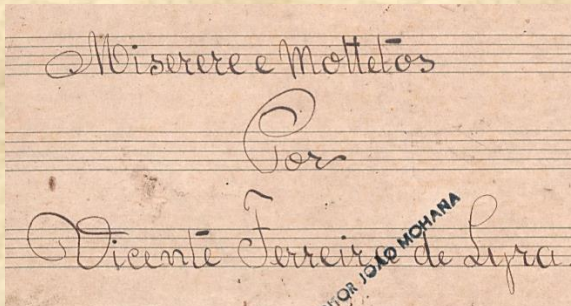 Miserere e Mottetos
Por
Vicente Ferreira de Lyra
HOR JOÃO MOHANA